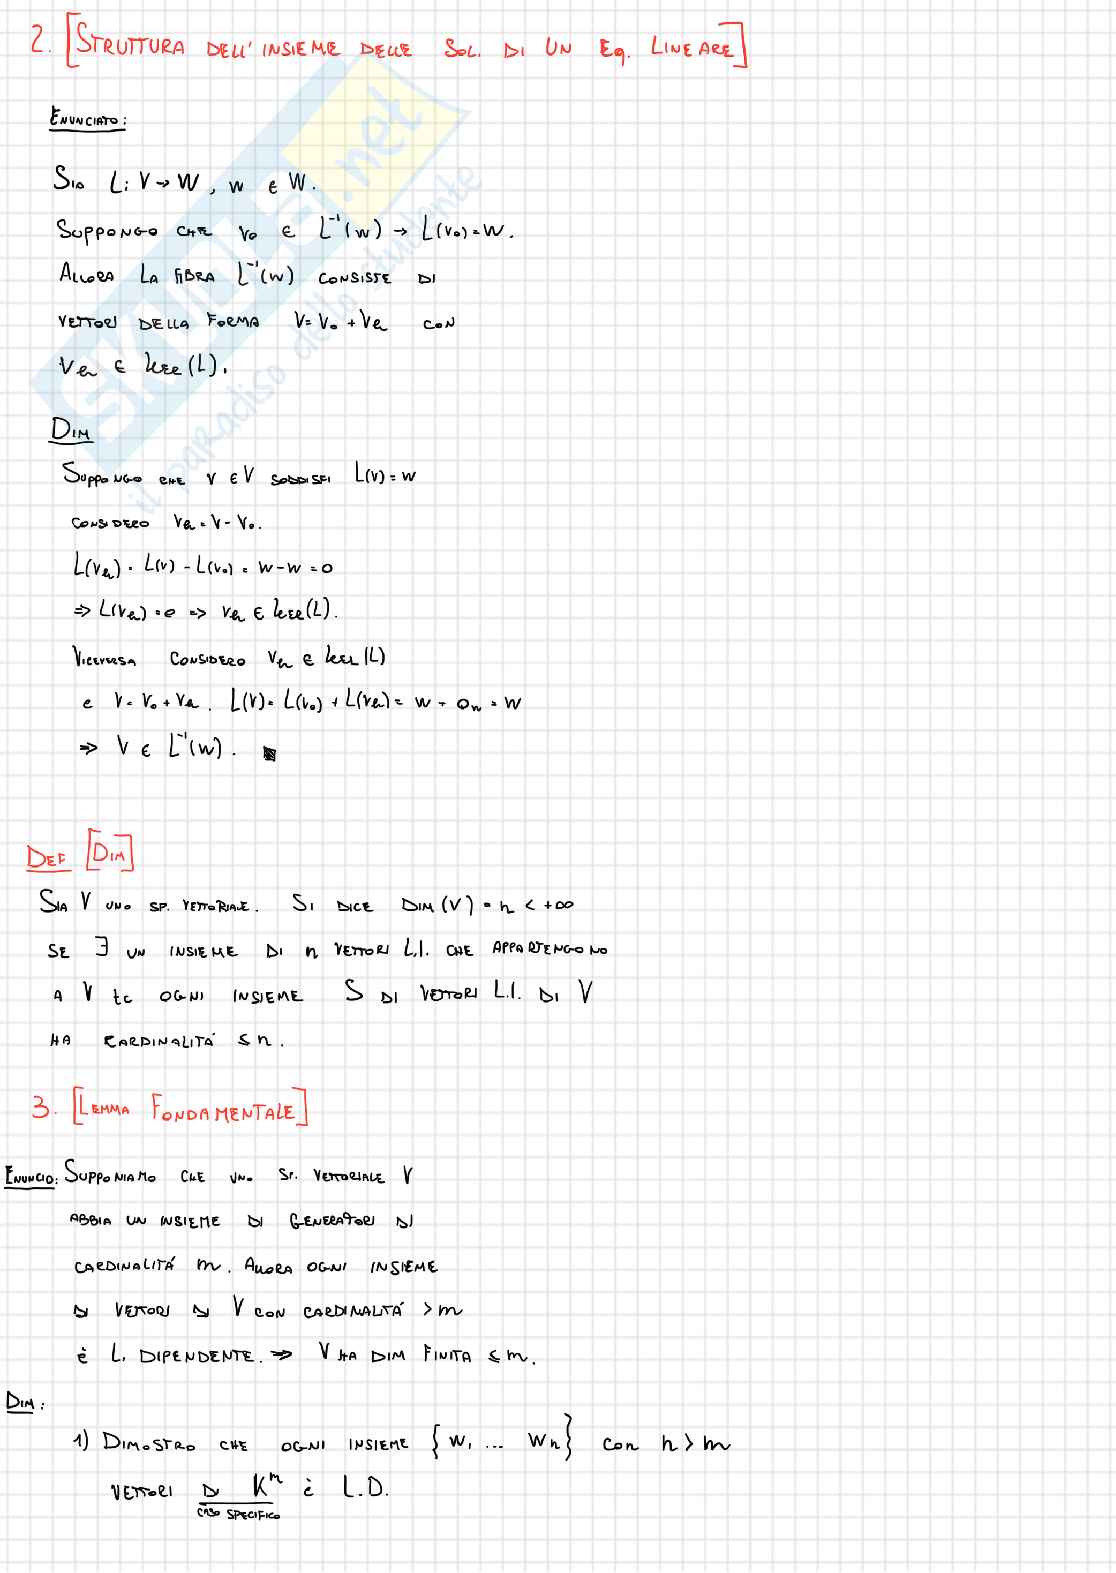 2. [STRUTTURA DELL'INSIEME DELLE SOL. DI UN EQ. LINEARE]
ENUNCIATO:
SIA L: V → W, w ∈ W.
SUPPONGO CHE v₀ ∈ L⁻¹(w) → L(v₀) = w.
ALLORA LA FIBRA L⁻¹(w) CONSISTE DI
VETTORI DELLA FORMA V = V₀ + Vₕ CON
Vₕ ∈ ker(L).
DIM
SUPPONGO CHE V ∈ V SODDISFI L(V) = W
CONSIDERO Vₕ = V - V₀.
L(Vₕ) = L(V) - L(V₀) = W - W = 0
⇒ L(Vₕ) = 0 ⇒ Vₕ ∈ ker(L).
VICEVERSA CONSIDERO Vₕ ∈ ker(L)
e V = V₀ + Vₕ. L(V) = L(V₀) + L(Vₕ) = W + 0w = W
⇒ V ∈ L⁻¹(W).
DEF [DIM]
SIA V UNO SP. VETTORIALE. SI DICE DIM(V) = n < +∞
SE ∃ UN INSIEME DI n VETTORI L.I. CHE APPARTENGONO
A V tc OGNI INSIEME S DI VETTORI L.I. DI V
HA CARDINALITÁ ≤ n.
3. [LEMMA FONDAMENTALE]
ENUNCIO: SUPPONIAMO CHE UNO SP. VETTORIALE V
ABBIA UN INSIEME DI GENERATORI DI
CARDINALITÁ m. ALLORA OGNI INSIEME
DI VETTORI DI V CON CARDINALITÁ > m
è L. DIPENDENTE. ⇒ V HA DIM FINITA ≤ m.
DIM:
1) DIMOSTRO CHE OGNI INSIEME {W₁ ... Wₙ} CON n > m
VETTORI DI Kᵐ è L.D.
CASO SPECIFICO
SKUOLA.net
il paradiso dello studente